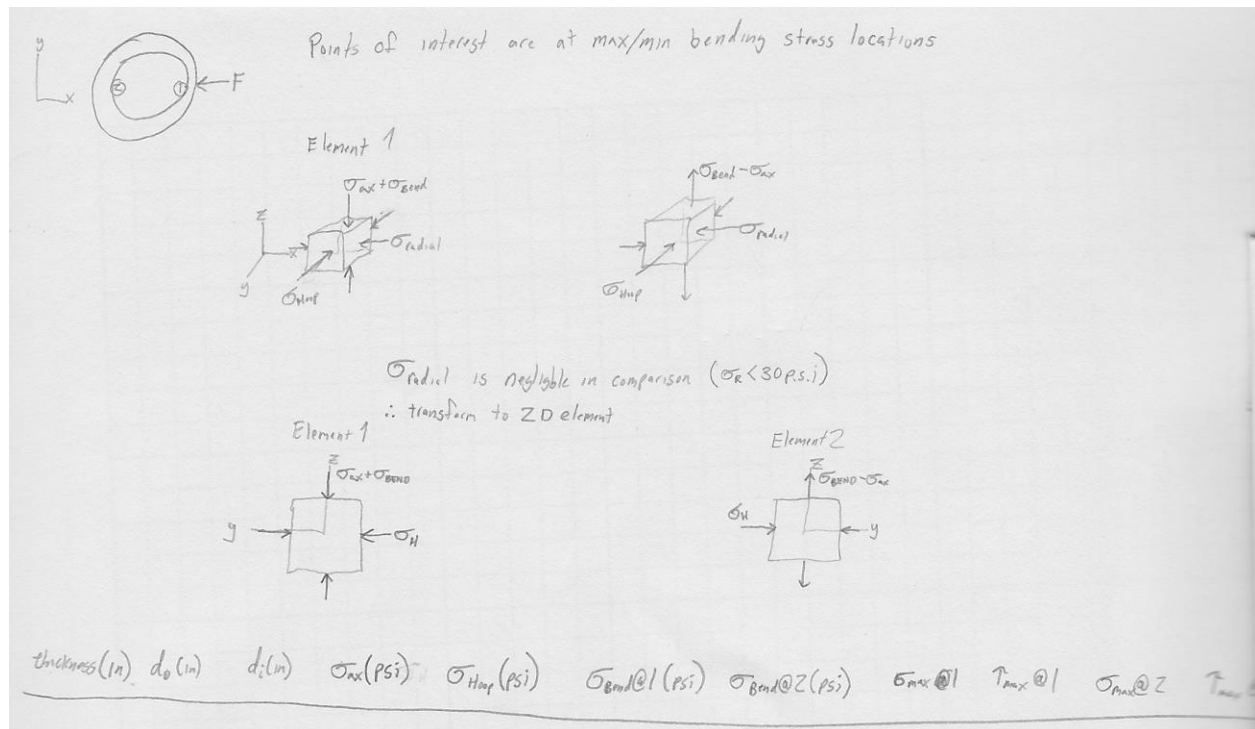 Points of interest are at max/min bending stress locations
y
x
2
1
F
Element 1
σax+σBend
z
x
y
σradial
σHoop
σBend-σax
σradial
σHoop
σradial is neglígble in comparison (σR<30p.s.i)
∴ transform to 2D element
Element 1
z
σax+σBEND
y
σH
Element 2
z
σBEND-σax
σH
y
thickness(in) do(in) di(in) σax(psi) σHoop(psi) σBend@1(psi) σBend@2(psi) σmax@1 τmax@1 σmax@2 τmax